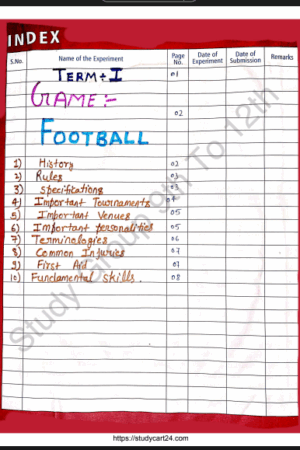 INDEX
S.No. Name of the Experiment Page No. Date of Experiment Date of Submission Remarks
TERM-I 01
GAME :- 02
FOOTBALL
1) History 02
2) Rules 03
3) Specifications 03
4) Important Tournaments 04
5) Important Venues 05
6) Important personalities 05
7) Terminologies 06
8) Common Injuries 07
9) First Aid 07
10) Fundamental skills. 08
Study Group 9th To 12th
https://studycart24.com